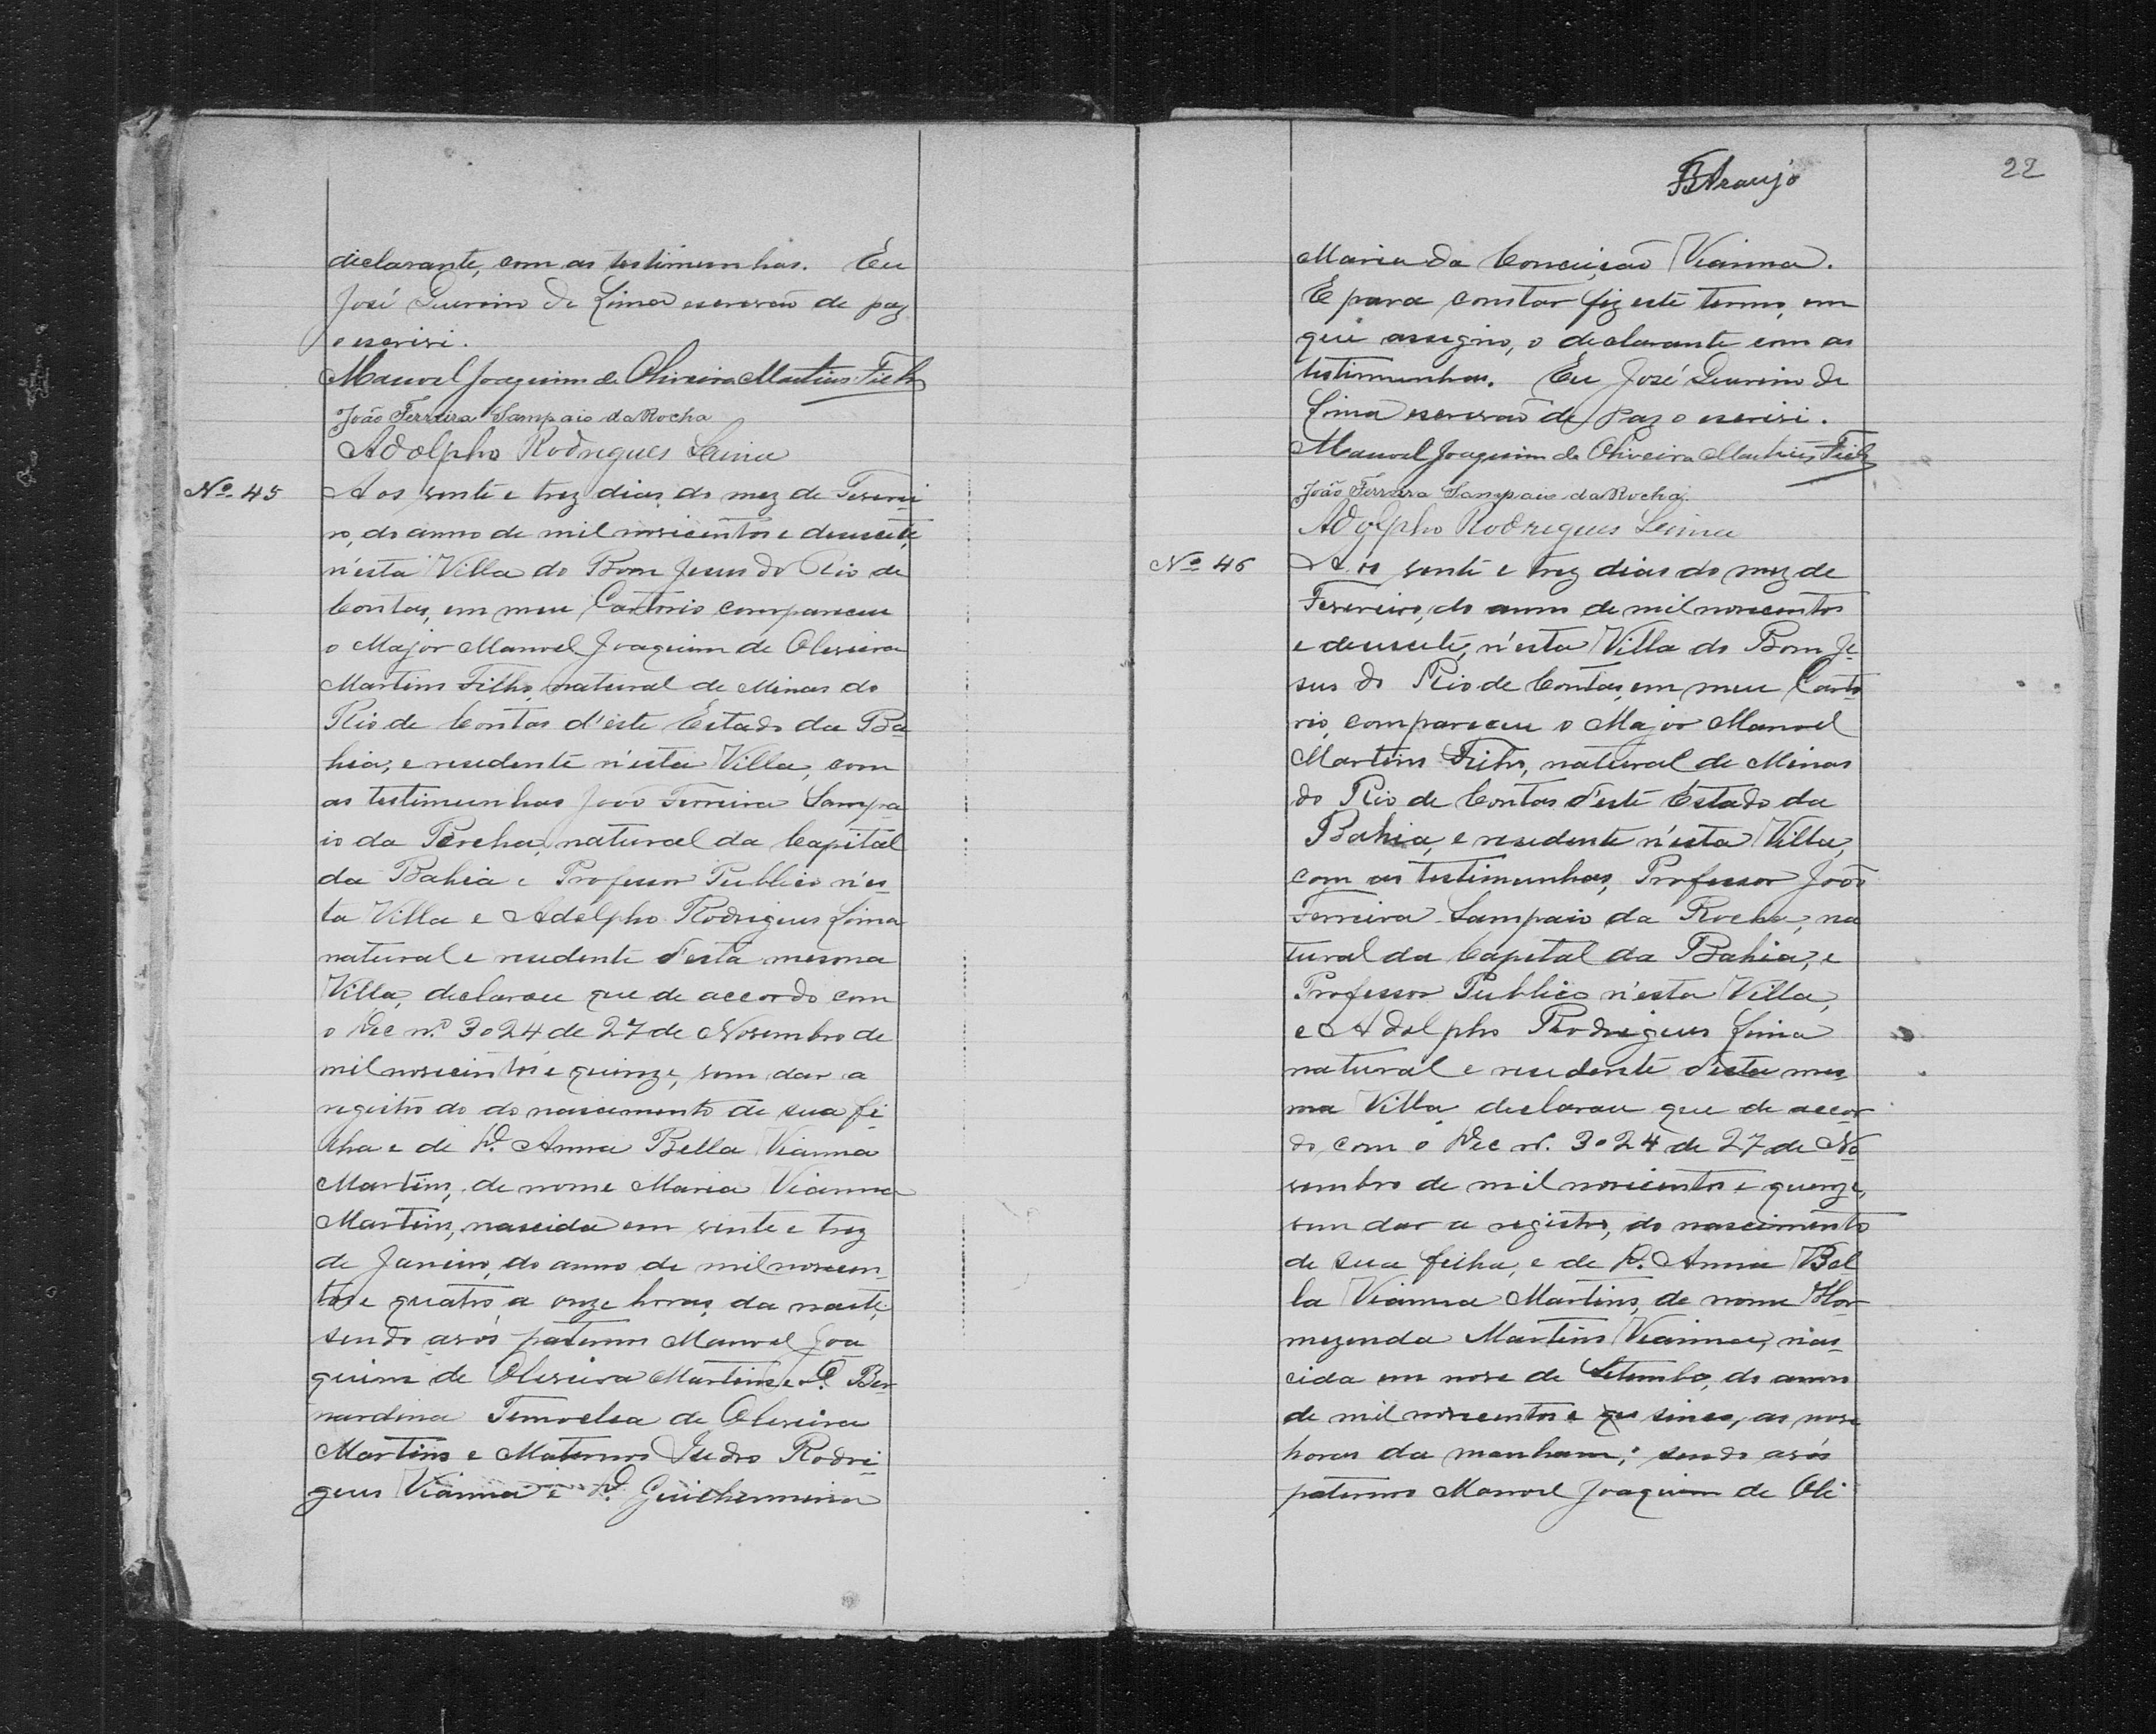 declarante, com as testimunhas. Eu
José de Lima escrivão de paz
o escrivi.
Manoel Joaquim de Oliveira Martins Filho
João Ferreira Sampaio da Rocha
Adolpho Rodrigues Lima
Nº 45
Aos vinte e trez dias do mez de Feverei-
ro, do anno de mil novicentos e desecete,
n'esta Villa do Bom Jesus do Rio de
Contas, em meu Cartorio compareceu
o Major Manoel Joaquim de Oliveira
Martins Filho, natural de Minas do
Rio de Contas d'este Estado da Ba-
hia, e residente n'esta Villa, com
as testimunhas João Ferreira Sampa-
io da Rocha, natural da Capital
da Bahia e Professor Publico n'es-
ta Villa e Adolpho Rodrigues Lima
natural e residente d'esta mesma
Villa, declarou que de accordo com
o Dec nº 3024 de 27 de Novembro de
mil novicintos e quinze, vem dar a
registro do do nascimento de sua fi-
lha e de D. Anna Bella Vianna
Martins, de nome Maria Vianna
Martins, nascida em vinte e trez
de Janeiro, do anno de mil novecen-
tos e quatro, a onze horas da noite,
sendo avós paternos Manoel Joa
quim de Oliveira Martins e D. Ber-
nardina de Oliveira
Martins e Maternos Rodri-
gues Vianna e D. Guilhermina
BAraujo
22
Maria da Conceição Vianna.
E para constar fiz este termo, em
que assigno, o declarante com as
testimunhas. Eu José de
Lima escrivão de Paz o escrivi.
Manoel Joaquim de Oliveira Martins Filho
João Ferreira Sampaio da Rocha
Adolpho Rodrigues Lima
Nº 46
Aos vinte e trez dias do mez de
Fevereiro, do anno de mil novecentos
e desecete, n'esta Villa do Bom Je-
sus do Rio de Contas, em meu Carto
rio, compareceu o Major Manoel
Martins Filho, natural de Minas
do Rio de Contas d'este Estado da
Bahia, e residente n'esta Villa,
com as testimunhas, Professor João
Ferreira Sampaio da Rocha, na
tural da Capital da Bahia, e
Professor Publico n'esta Villa,
e Adolpho Rodrigues Lima
natural e residente d'esta mes-
ma Villa declarou que de accor
do com o Dec nº. 3024 de 27 de No-
vembro de mil novicentos e quinze,
vem dar a registro, do nascimento
de sua filha, e de D. Anna Bel
la Vianna Martins, de nome Hor
mezenda Martins Vianna, nas-
cida em nove de Setembro, do anno
de mil novecentos e sinco, as nove
horas da manham; sendo avós
paternos Manoel Joaquim de Oli